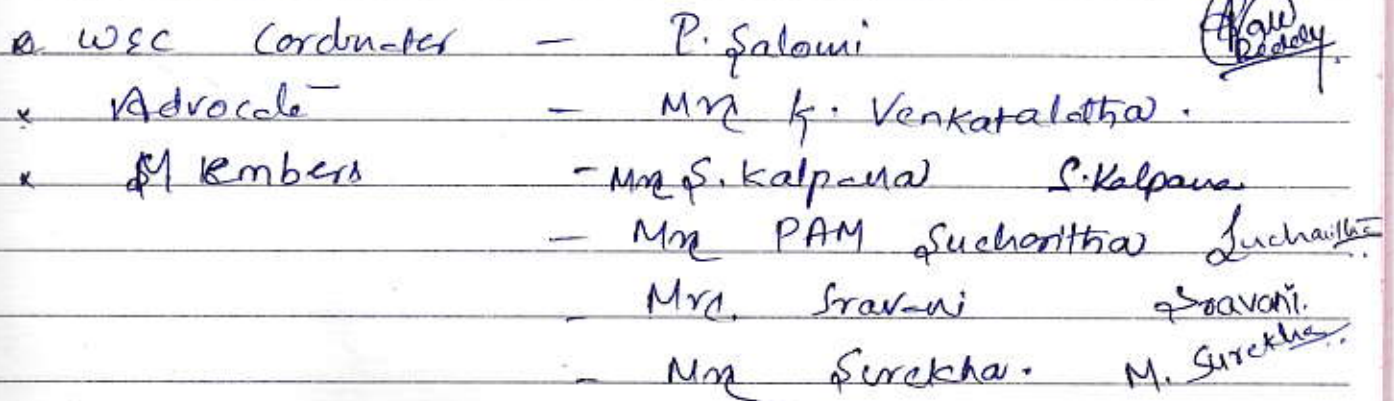 WSC Cordinater - P. Salomi
x Advocate - Mrs K. Venkatalatha.
x Members - Mrs S. Kalpana S. Kalpana
- Mrs PAM Sucharitha Sucharitha
- Mrs. Sravani Sravani.
- Mrs Surekha. M. Surekha.